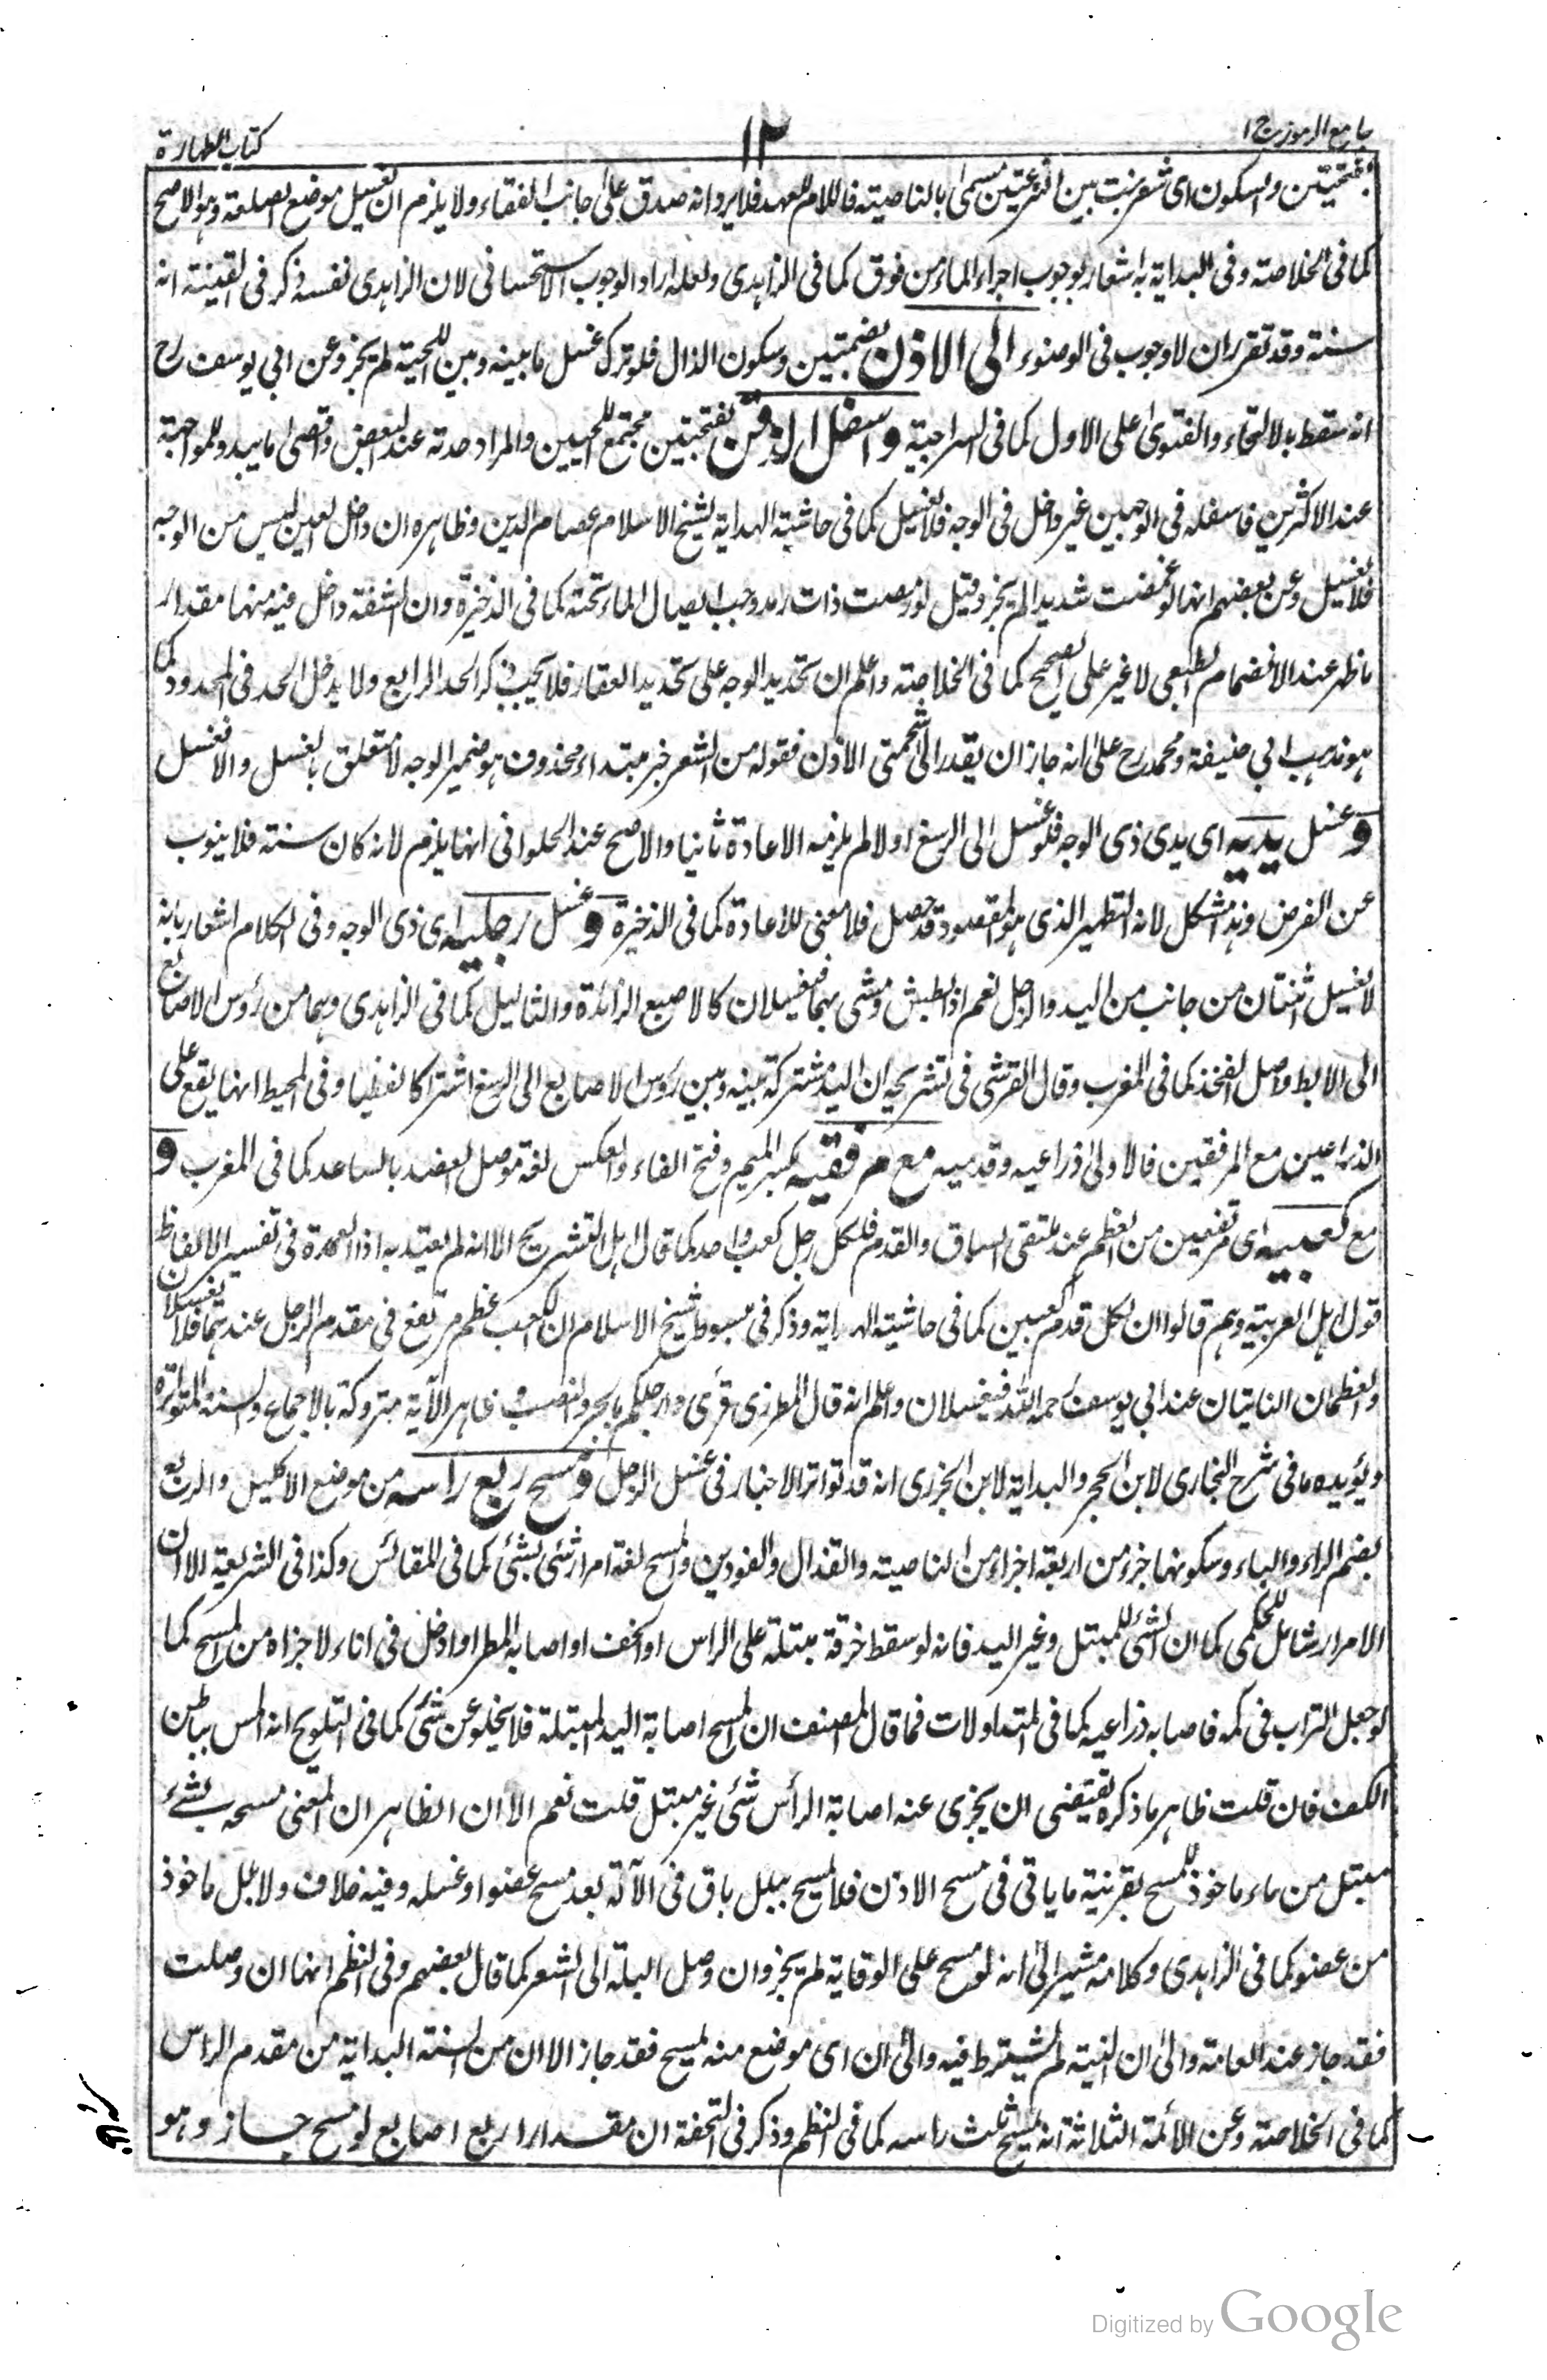 جامع الرموز ج ١
١٢
كتاب الطهارة
بفتحتين والسكون اى شعر ينبت بين النزعتين مسمى بالناصية فاللام للعهد فلا يرد انه صدق على جانب القفاء ولا يلزم ان تغسل موضع الصلعة وهو الاصح
كما فى الخلاصة وفى البداية به اشعار بوجوب اجراء الماء من فوق كما فى الزاهدى ولعله اراد الوجوب الاستحسانى لان الزاهدى نفسه ذكر فى القينة انه
سنة وقد تقرر ان لا وجوب فى الوضوء الى الاذن بضمتين وسكون الذال فلو ترك غسل ما بينه وبين اللحية لم يجز وعن ابى يوسف رح
انه سقط بالالتحاء والفتوى على الاول كما فى السراجية واسفل الذقن بفتحتين مجتمع اللحيين والمراد حدته عند البعض واقصى ما يبدو للمواجهة
عند الاكثرين فاسفله فى الوجهين غير داخل فى الوجه فلا يغسل كما فى حاشية الهداية لشيخ الاسلام عصام الدين وظاهره ان داخل العين ليس من الوجه
فلا تغسيل وعن بعضهم انها لو غمضت شديدا لم يجز وقيل لو رمصت ذات رمد وجب ايصال الماء تحته كما فى الذخيرة وان الشفة داخل فيه منها مقدار
ما ظهر عند الانضمام الطبعى لا غير على الصحيح كما فى الخلاصة واعلم ان تحديد الوجه على تحديد العقار فلا يجب ذكر الحد الرابع ولا يدخل الحد فى المحدود كما
هو مذهب ابى حنيفة ومحمد رح على انه جاز ان يقدر الى شحمتى الاذن فقوله من الشعر خبر مبتداء محذوف هو ضمير الوجه لا متعلق بالغسل والا لغسل
وغسل يديه اى يدى ذى الوجه فلو غسل الى الرسغ اولا لم يلزمه الاعادة ثانيا والاصح عند الحلوانى انها يلزم لانه كان سنة فلا ينوب
عن الفرض وهذا مشكل لان التطهير الذى هو المقصود قد حصل فلا معنى للاعادة كما فى الذخيرة وغسل رجليه اى ذى الوجه وفى الكلام اشعار بانه
لا تغسيل ثنتان من جانب من اليد والرجل نعم اذا بطش ومشى بهما فتغسيلان كالاصبع الزائدة والثاليل كما فى الزاهدى وهما من رؤس الاصابع
الى الابط واصل الفخذ كما فى المغرب وقال القرشى فى تشريحه ان اليد مشتركة بينه وبين رؤس الاصابع الى الرسغ اشتراكا لفظيا وفى المحيط انها يقع على
الذراعين مع المرفقين فالاولى ذراعيه وقدميه مع مرفقيه بكسر الميم وفتح الفاء والعكس لغة موصل العضد بالساعد كما فى المغرب و
مع كعبيه اى مرتفعين من العظم عند ملتقى الساق والقدم فلكل رجل كعب واحد كما قال اهل التشريح الا انه لم يعتد به اذا العمدة فى تفسير الالفاظ
قول اهل العربية وهم قالوا ان لكل قدم كعبين كما فى حاشية الهداية وذكر فى مبسوط شيخ الاسلام ان الكعب عظم مرتفع فى مقدم الرجل عندهما فلا تغسلان
والعظمان الناتيان عند ابى يوسف رحمه الله فيغسلان واعلم انه قال المطرزى قرئ وارجلكم بالجر والنصب وظاهر الآية متروكة بالاجماع والسنة المتواترة
ويؤيده ما فى شرح البخارى لابن الحجر والبداية لابن الجزرى انه قد تواتر الاخبار فى غسل الرجل ومسح ربع راسه من موضع الاكليل والربع
بضم الراء والباء وسكونها جزء من اربعة اجزاء من الناصية والقذال والفودين والمسح لغة امرار شئ بشئ كما فى المقائس وكذا فى الشريعة الا ان
الامرار شامل للحكمى كما ان الشئ للمبتل وغير اليد فانه لو سقط خرقة مبتلة على الراس او الخف او اصابه المطر او ادخل فى اناء لاجزاه من المسح كما
لو جعل التراب فى كمه فاصابه ذراعيه كما فى المتداولات فما قال المصنف ان المسح اصابة اليد المبتلة فلا يخلو عن شئ كما فى التلويح انه المس بباطن
الكف فان قلت ظاهر ما ذكره يقتضى ان يجزى عنه اصابة الرأس شئ غير مبتل قلت نعم الا ان الظاهر ان المعنى مسحه بشئ
مبتل من ماء ماخوذ للمسح بقرينة ما ياتى فى مسح الاذن فلا يمسح ببلل باق فى الآلة بعد مسح عضو او غسله وفيه خلاف ولا بلل ماخوذ
من عضو كما فى الزاهدى وكلامه مشير الى انه لو مسح على الوقاية لم يجز وان وصل البلة الى الشعر كما قال بعضهم وفى النظم انها ان وصلت
فقد جاز عند العامة والى ان النية لم يشترط فيه والى ان اى موضع منه يمسح فقد جاز الا ان من السنة البداية من مقدم الراس
كما فى الخلاصة وعن الائمة الثلاثة انه يمسح ثلث راسه كما فى النظم وذكر فى التحفة ان مقدار اربع اصابع لو مسح جاز وهو
Digitized by Google